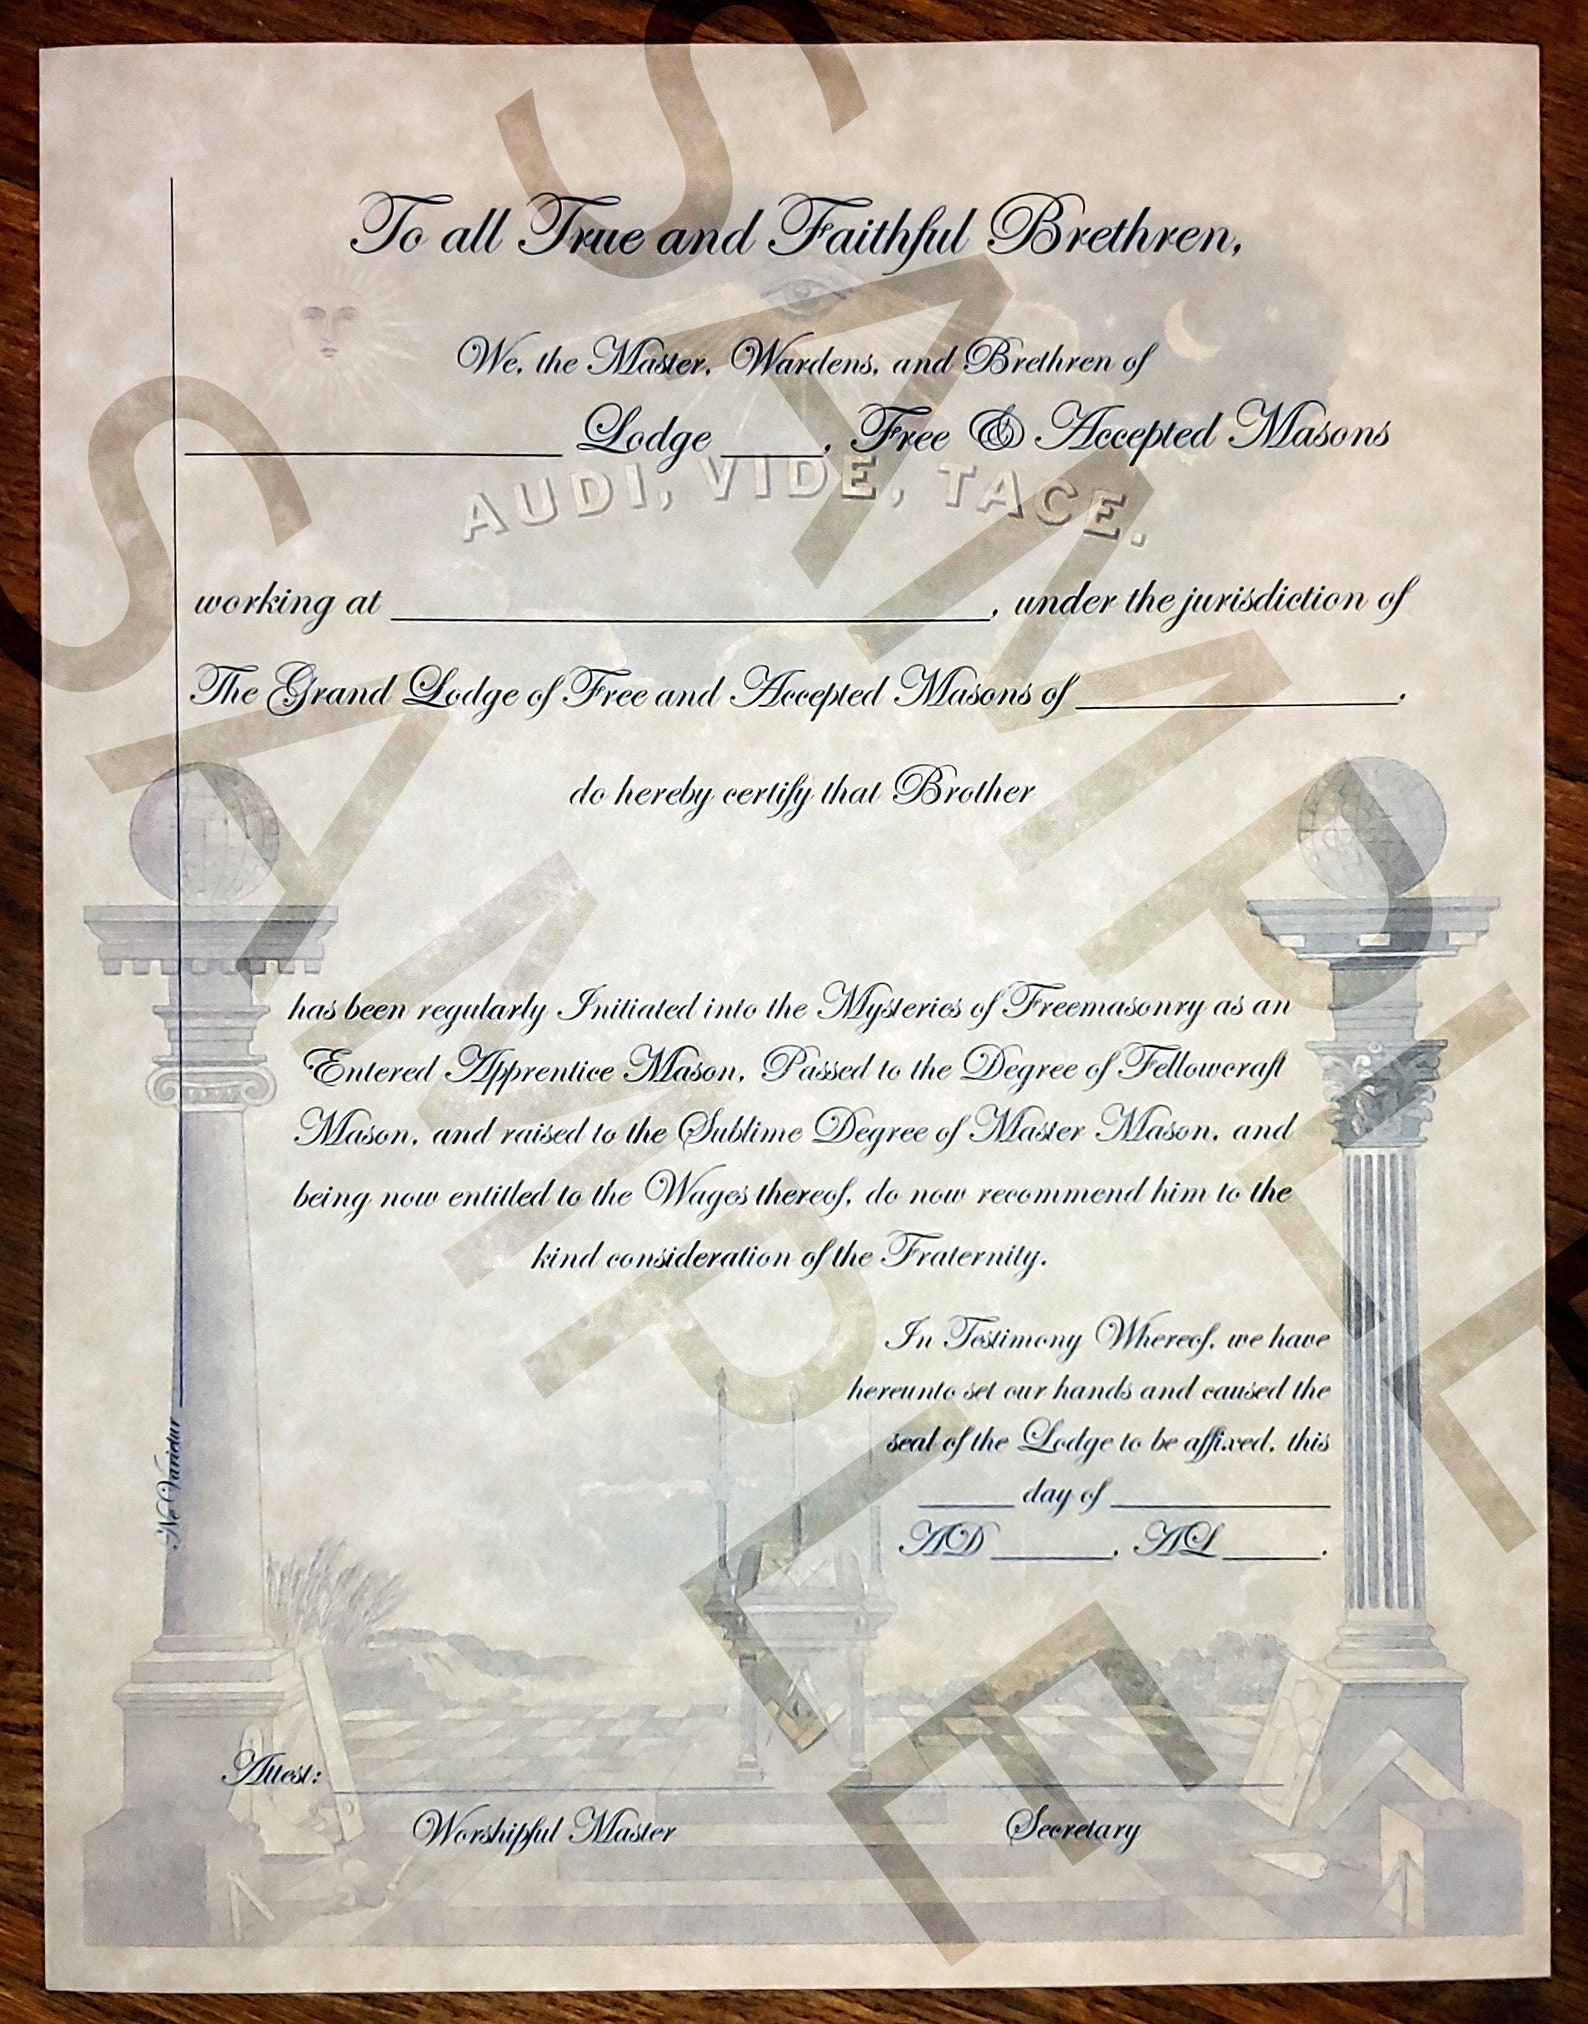 To all True and Faithful Brethren,
We, the Master, Wardens, and Brethren of
____ Lodge ____, Free & Accepted Masons
AUDI, VIDE, TACE.
working at ____, under the jurisdiction of
The Grand Lodge of Free and Accepted Masons of ____.
do hereby certify that Brother
has been regularly Initiated into the Mysteries of Freemasonry as an
Entered Apprentice Mason, Passed to the Degree of Fellowcraft
Mason, and raised to the Sublime Degree of Master Mason, and
being now entitled to the Wages thereof, do now recommend him to the
kind consideration of the Fraternity.
In Testimony Whereof, we have
hereunto set our hands and caused the
seal of the Lodge to be affixed, this
____ day of ____
AD ____, AL ____.
Ne Varietur
Attest:
Worshipful Master
Secretary
SAMPLE
SAMPLE